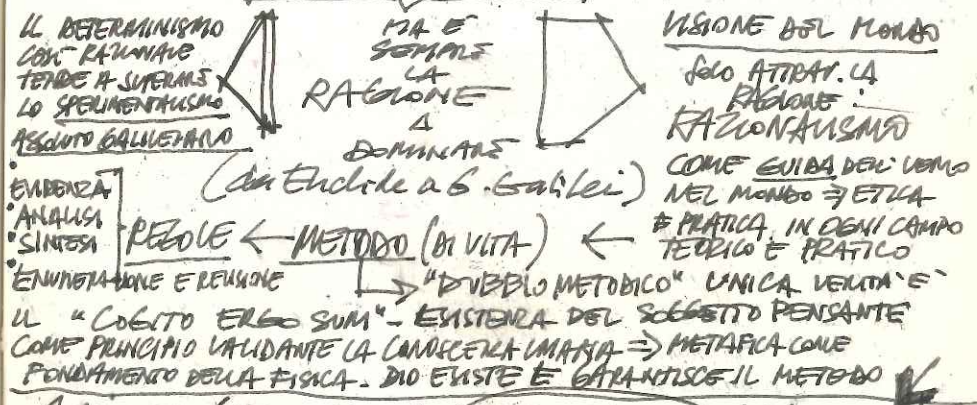 IL DETERMINISMO
COSÌ RAZIONALE
TENDE A SUPERARE
LO SPERIMENTALISMO
ASSOLUTO GALILEIANO
MA È
SEMPRE
LA
RAGIONE
A
DOMINARE
(da Euclide a G. Galilei)
VISIONE DEL MONDO
SOLO ATTRAV. LA
RAGIONE:
RAZIONALISMO
COME GUIDA DELL'UOMO
NEL MONDO ⇒ ETICA
E PRATICA, IN OGNI CAMPO
TEORICO E PRATICO
← METODO (DI VITA) ←
REGOLE
• EVIDENZA
• ANALISI
• SINTESI
• ENUMERAZIONE E REVISIONE
"DUBBIO METODICO" UNICA VERITÀ È
IL "COGITO ERGO SUM" - ESISTENZA DEL SOGGETTO PENSANTE
COME PRINCIPIO VALIDANTE LA CONOSCENZA UMANA ⇒ METAFICA COME
FONDAMENTO DELLA FISICA - DIO ESISTE E GARANTISCE IL METODO